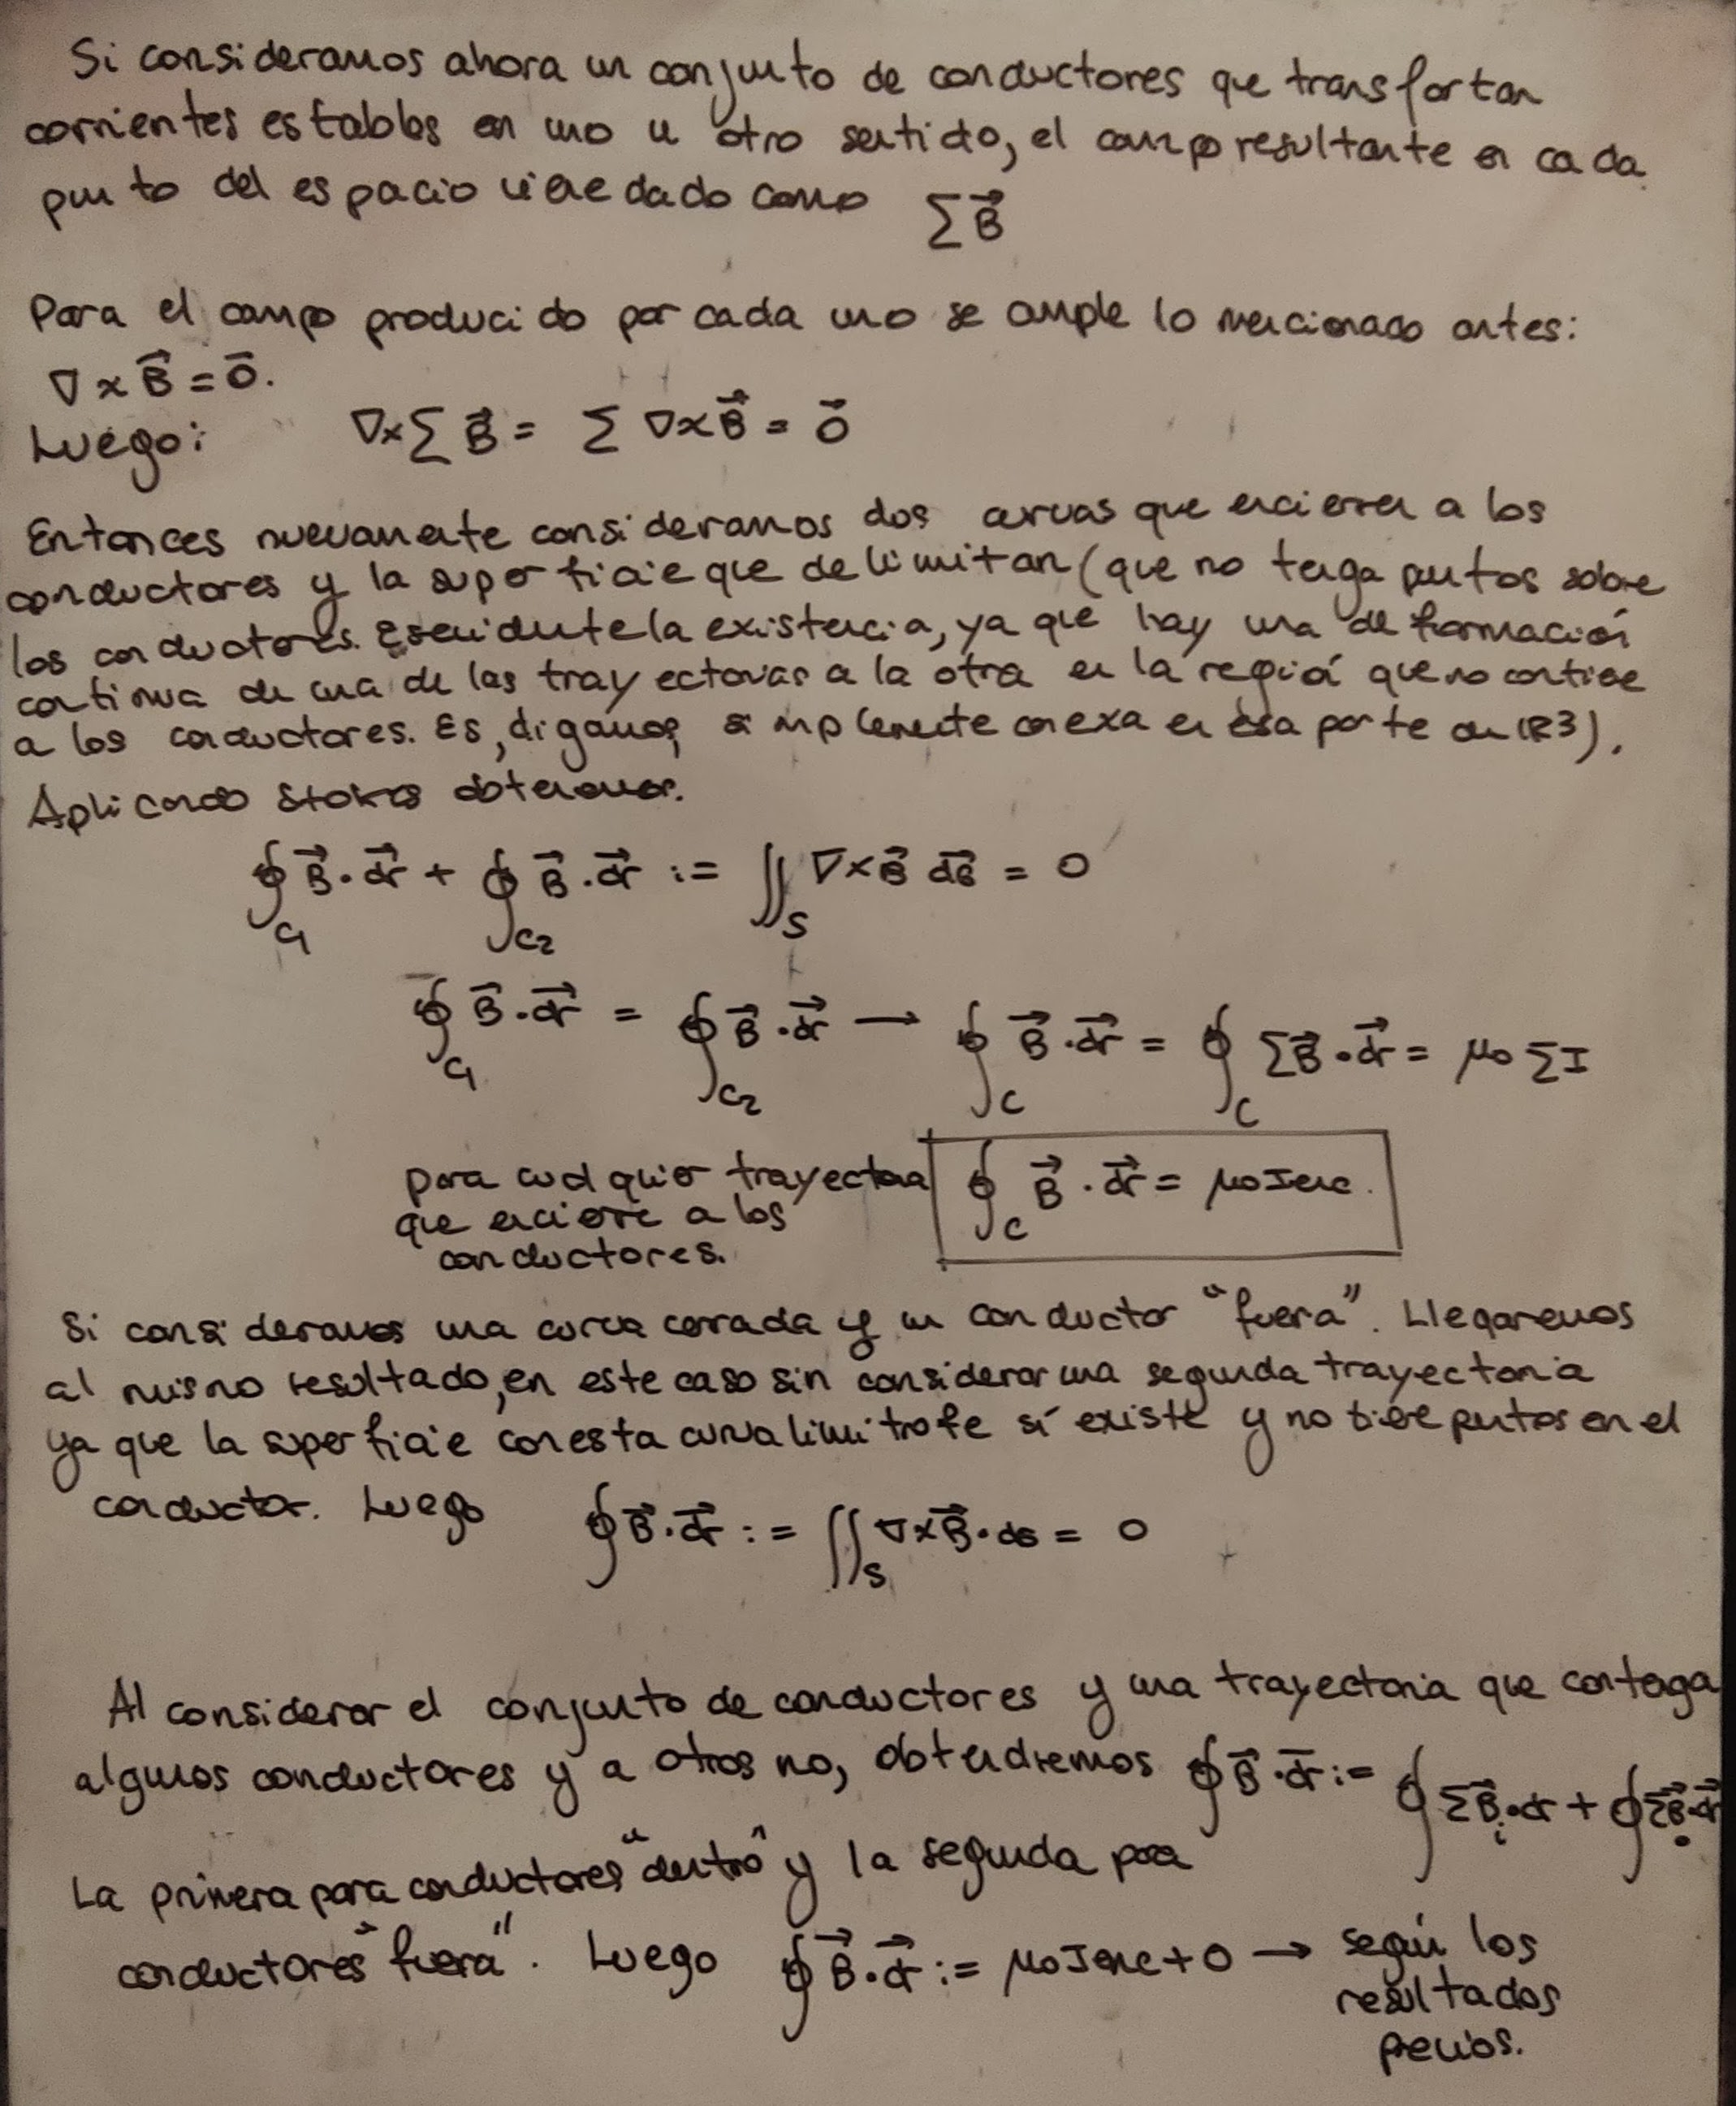 Si consideramos ahora un conjunto de conductores que transportan
corrientes estables en uno u otro sentido, el campo resultante en cada
punto del espacio viene dado como ∑B⃗
Para el campo producido por cada uno se cumple lo mencionado antes:
∇×B⃗ = 0⃗.
Luego: ∇×∑B⃗ = ∑∇×B⃗ = 0⃗
Entonces nuevamente consideramos dos curvas que encierren a los
conductores y la superficie que delimitan (que no tenga puntos sobre
los conductores. Es evidente la existencia, ya que hay una deformación
continua de una de las trayectorias a la otra en la región que no contiene
a los conductores. Es, digamos, simplemente conexa en esa parte de R3).
Aplicando Stokes obtenemos.
∮_C1 B⃗·dr⃗ + ∮_C2 B⃗·dr⃗ := ∬_S ∇×B⃗ ds⃗ = 0
∮_C1 B⃗·dr⃗ = ∮_C2 B⃗·dr⃗ → ∮_C B⃗·dr⃗ = ∮_C ∑B⃗·dr⃗ = μ₀∑I
para cualquier trayectoria ∮_C B⃗·dr⃗ = μ₀Ienc.
que encierre a los
conductores.
Si consideramos una curva cerrada y un conductor "fuera". Llegaremos
al mismo resultado, en este caso sin considerar una segunda trayectoria
ya que la superficie con esta curva limítrofe sí existe y no tiene puntos en el
conductor. Luego ∮B⃗·dr⃗ := ∬_S ∇×B⃗·ds = 0
Al considerar el conjunto de conductores y una trayectoria que contenga
algunos conductores y a otros no, obtendremos ∮B⃗·dr⃗ := ∮∑B⃗i·dr + ∮∑B⃗o·dr⃗
La primera para conductores "dentro" y la segunda para
conductores "fuera". Luego ∮B⃗·dr⃗ := μ₀Ienc + 0 → según los
resultados
previos.